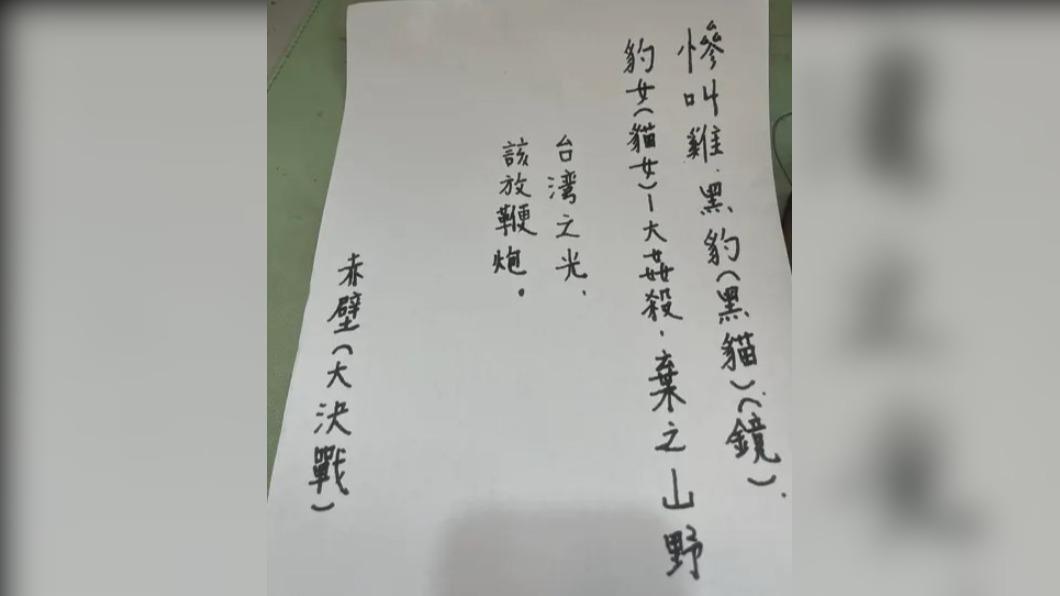 慘叫雞.黑豹(黑貓)(鏡).
豹女(貓女)-大姦殺,棄之山野
台湾之光、
該放鞭炮。
赤壁(大決戰)